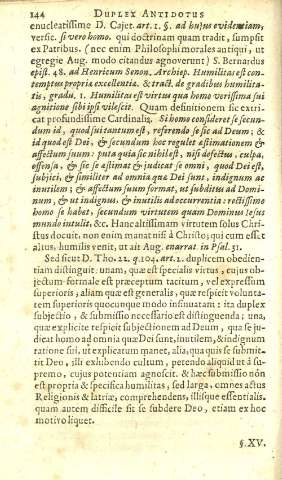 144 DUPLEX ANTIDOTUS
enucleatissime D. Cajet. art. 1. §. ad hujus evidentiam,
versic. si vero homo. qui doctrinam quam tradit, sumpsit
ex Patribus. (nec enim Philosophi morales antiqui, ut
egregie Aug. modo citandus agnoverunt) S. Bernardus
epist. 48. ad Henricum Senon. Archiep. Humilitas est con-
temptus propriæ excellentiæ. & tract. de gradibus humilita-
tis, gradu. 1. Humilitas est virtus qua homo verissima sui
agnitione sibi ipsi vilescit. Quam definitionem sic extri-
cat profundissime Cardinalis. Si homo consideret se secun-
dum id, quod sui tantum est, referendo se sic ad Deum; &
id quod est Dei, & secundum hoc regulet æstimationem &
affectum suum: puta quia sic nihil est, nisi defectus, culpa,
offensa, & se sic æstimat & judicat se omni, quod Dei est,
subjici, & similiter ad omnia quæ Dei sunt, indignum ac
inutilem; & affectum suum format, ut subditus ad Domi-
num, & ut indignus, & inutilis ad occurrentia: rectissimo
homo se habet, secundum virtutem quam Dominus Iesus
mundo intulit, &c. Hanc altissimam virtutem solus Chri-
stus docuit. non enim manat nisi à Christo; qui cum esset
altus, humilis venit, ut ait Aug. enarrat in Psal. 31.
Sed sicut D. Tho. 22. q. 104. art. 2. duplicem obedien-
tiam distinguit: unam, quæ est specialis virtus, cujus ob-
jectum formale est præceptum tacitum, vel expressum
superioris; aliam quæ est generalis, quæ respicit volunta-
tem superioris quocunque modo insinuatam: ita duplex
subjectio, & submissio necessario est distinguenda; una,
quæ explicite respicit subjectionem ad Deum, qua se ju-
dicat homo ad omnia quæ Dei sunt, inutilem, & indignum
ratione sui. ut explicatum manet, alia, qua quis se submit-
tit Deo, illi exhibendo cultum, petendo aliquid ut à su-
premo, cujus potentiam agnoscit. & hæc submissio non
est propria & specifica humilitas, sed larga, omnes actus
Religionis & latriæ, comprehendens, illisque essentialis.
quam autem difficile sit se subdere Deo, etiam ex hoc
motivo liquet.
§. XV.